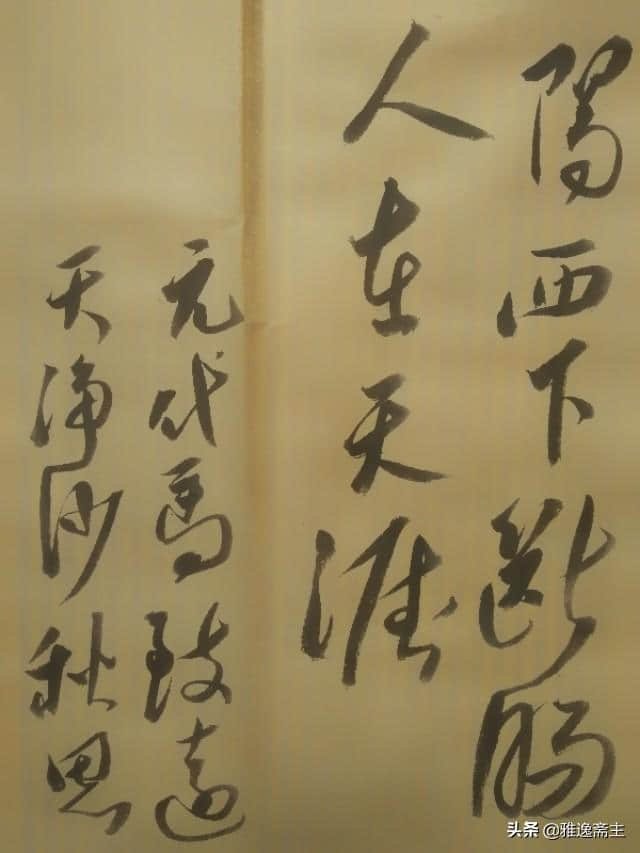 陽西下斷腸
人在天涯
元代馬致遠
天淨沙秋思
头条@雅逸斋主